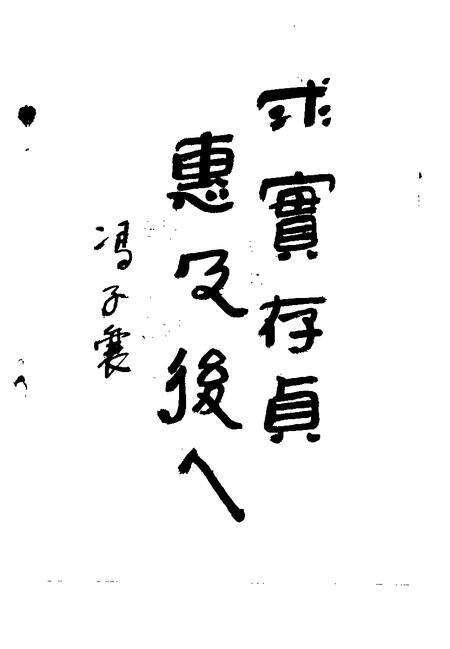 求實存貞
惠及後人
冯子震